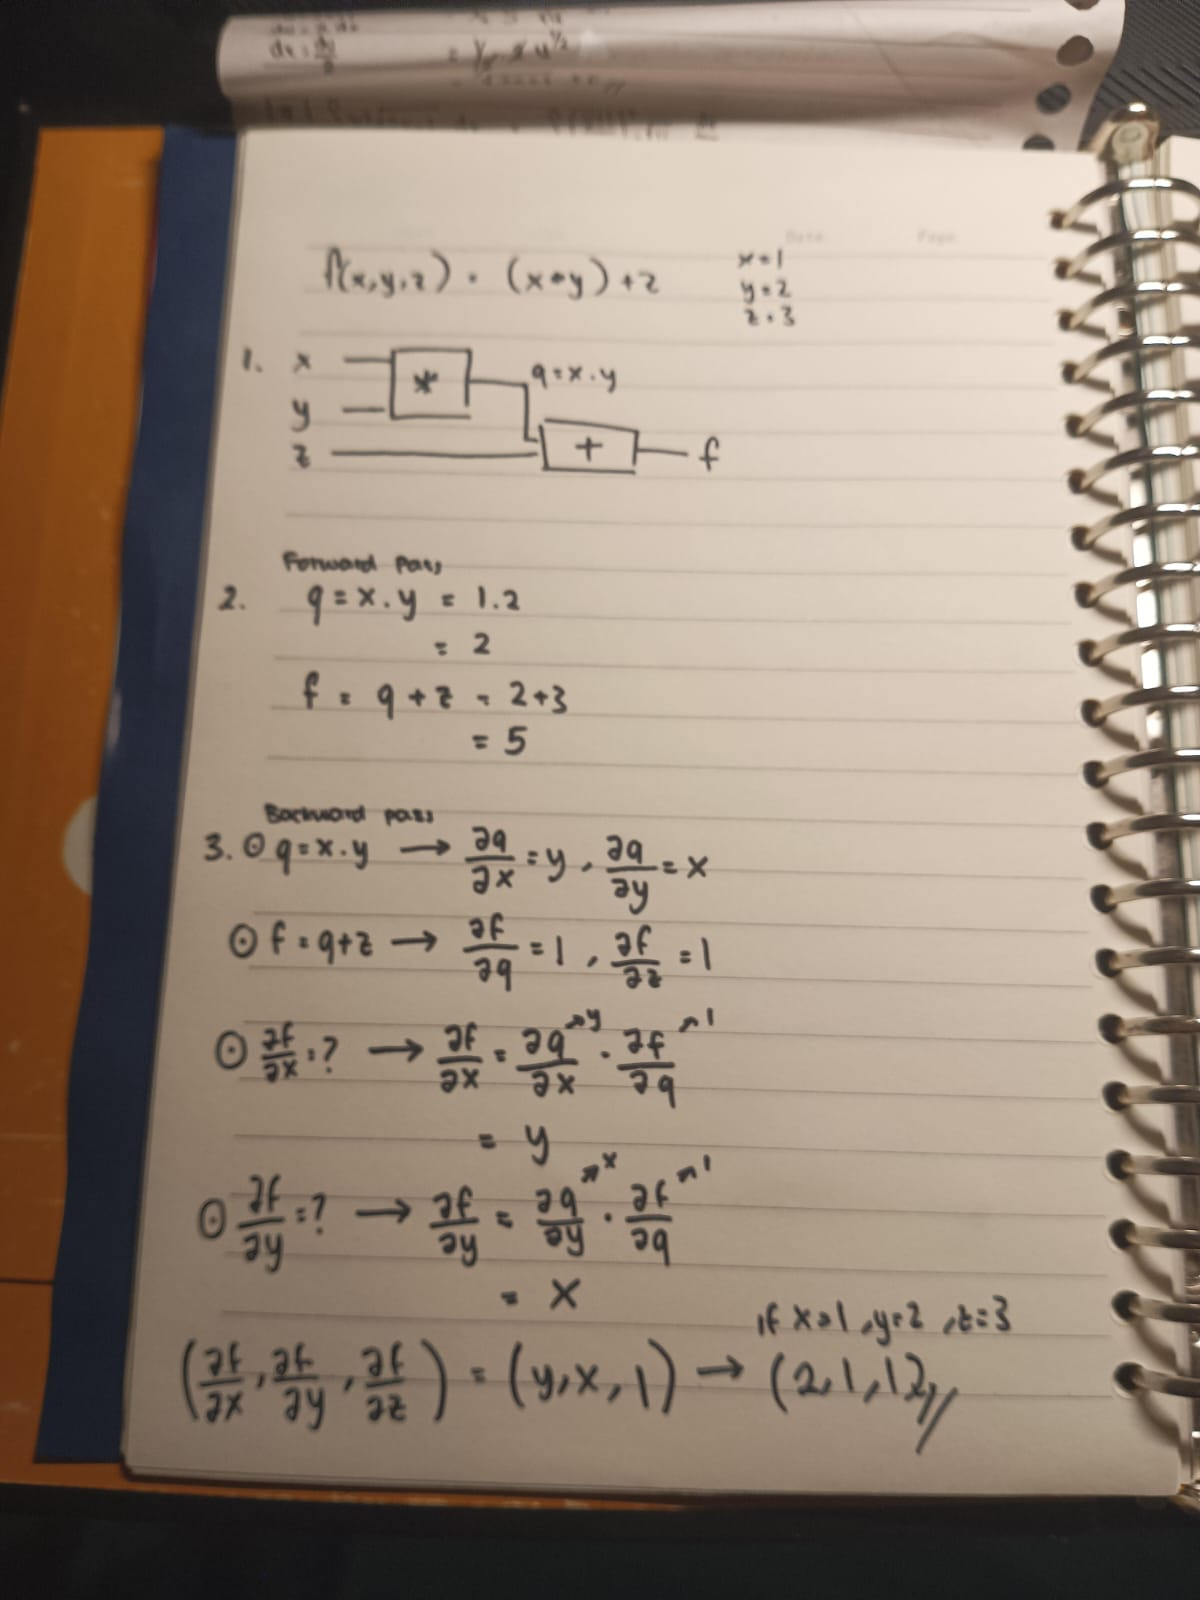 = 1/5 · 2 u^1/2
f(x,y,z) = (x*y)+z
x=1
y=2
z=3
1. x
*
q=x.y
y
z
+
f
Forward Pass
2. q=x.y = 1.2
= 2
f = q+z = 2+3
= 5
Backward pass
3. ⊙ q=x.y → ∂q/∂x = y, ∂q/∂y = x
⊙ f=q+z → ∂f/∂q = 1, ∂f/∂z = 1
⊙ ∂f/∂x = ? → ∂f/∂x = ∂q/∂x ↗y . ∂f/∂q ↗1
= y
⊙ ∂f/∂y = ? → ∂f/∂y = ∂q/∂y ↗x . ∂f/∂q ↗1
= x
if x=1, y=2, z=3
(∂f/∂x, ∂f/∂y, ∂f/∂z) = (y,x,1) → (2,1,1)//